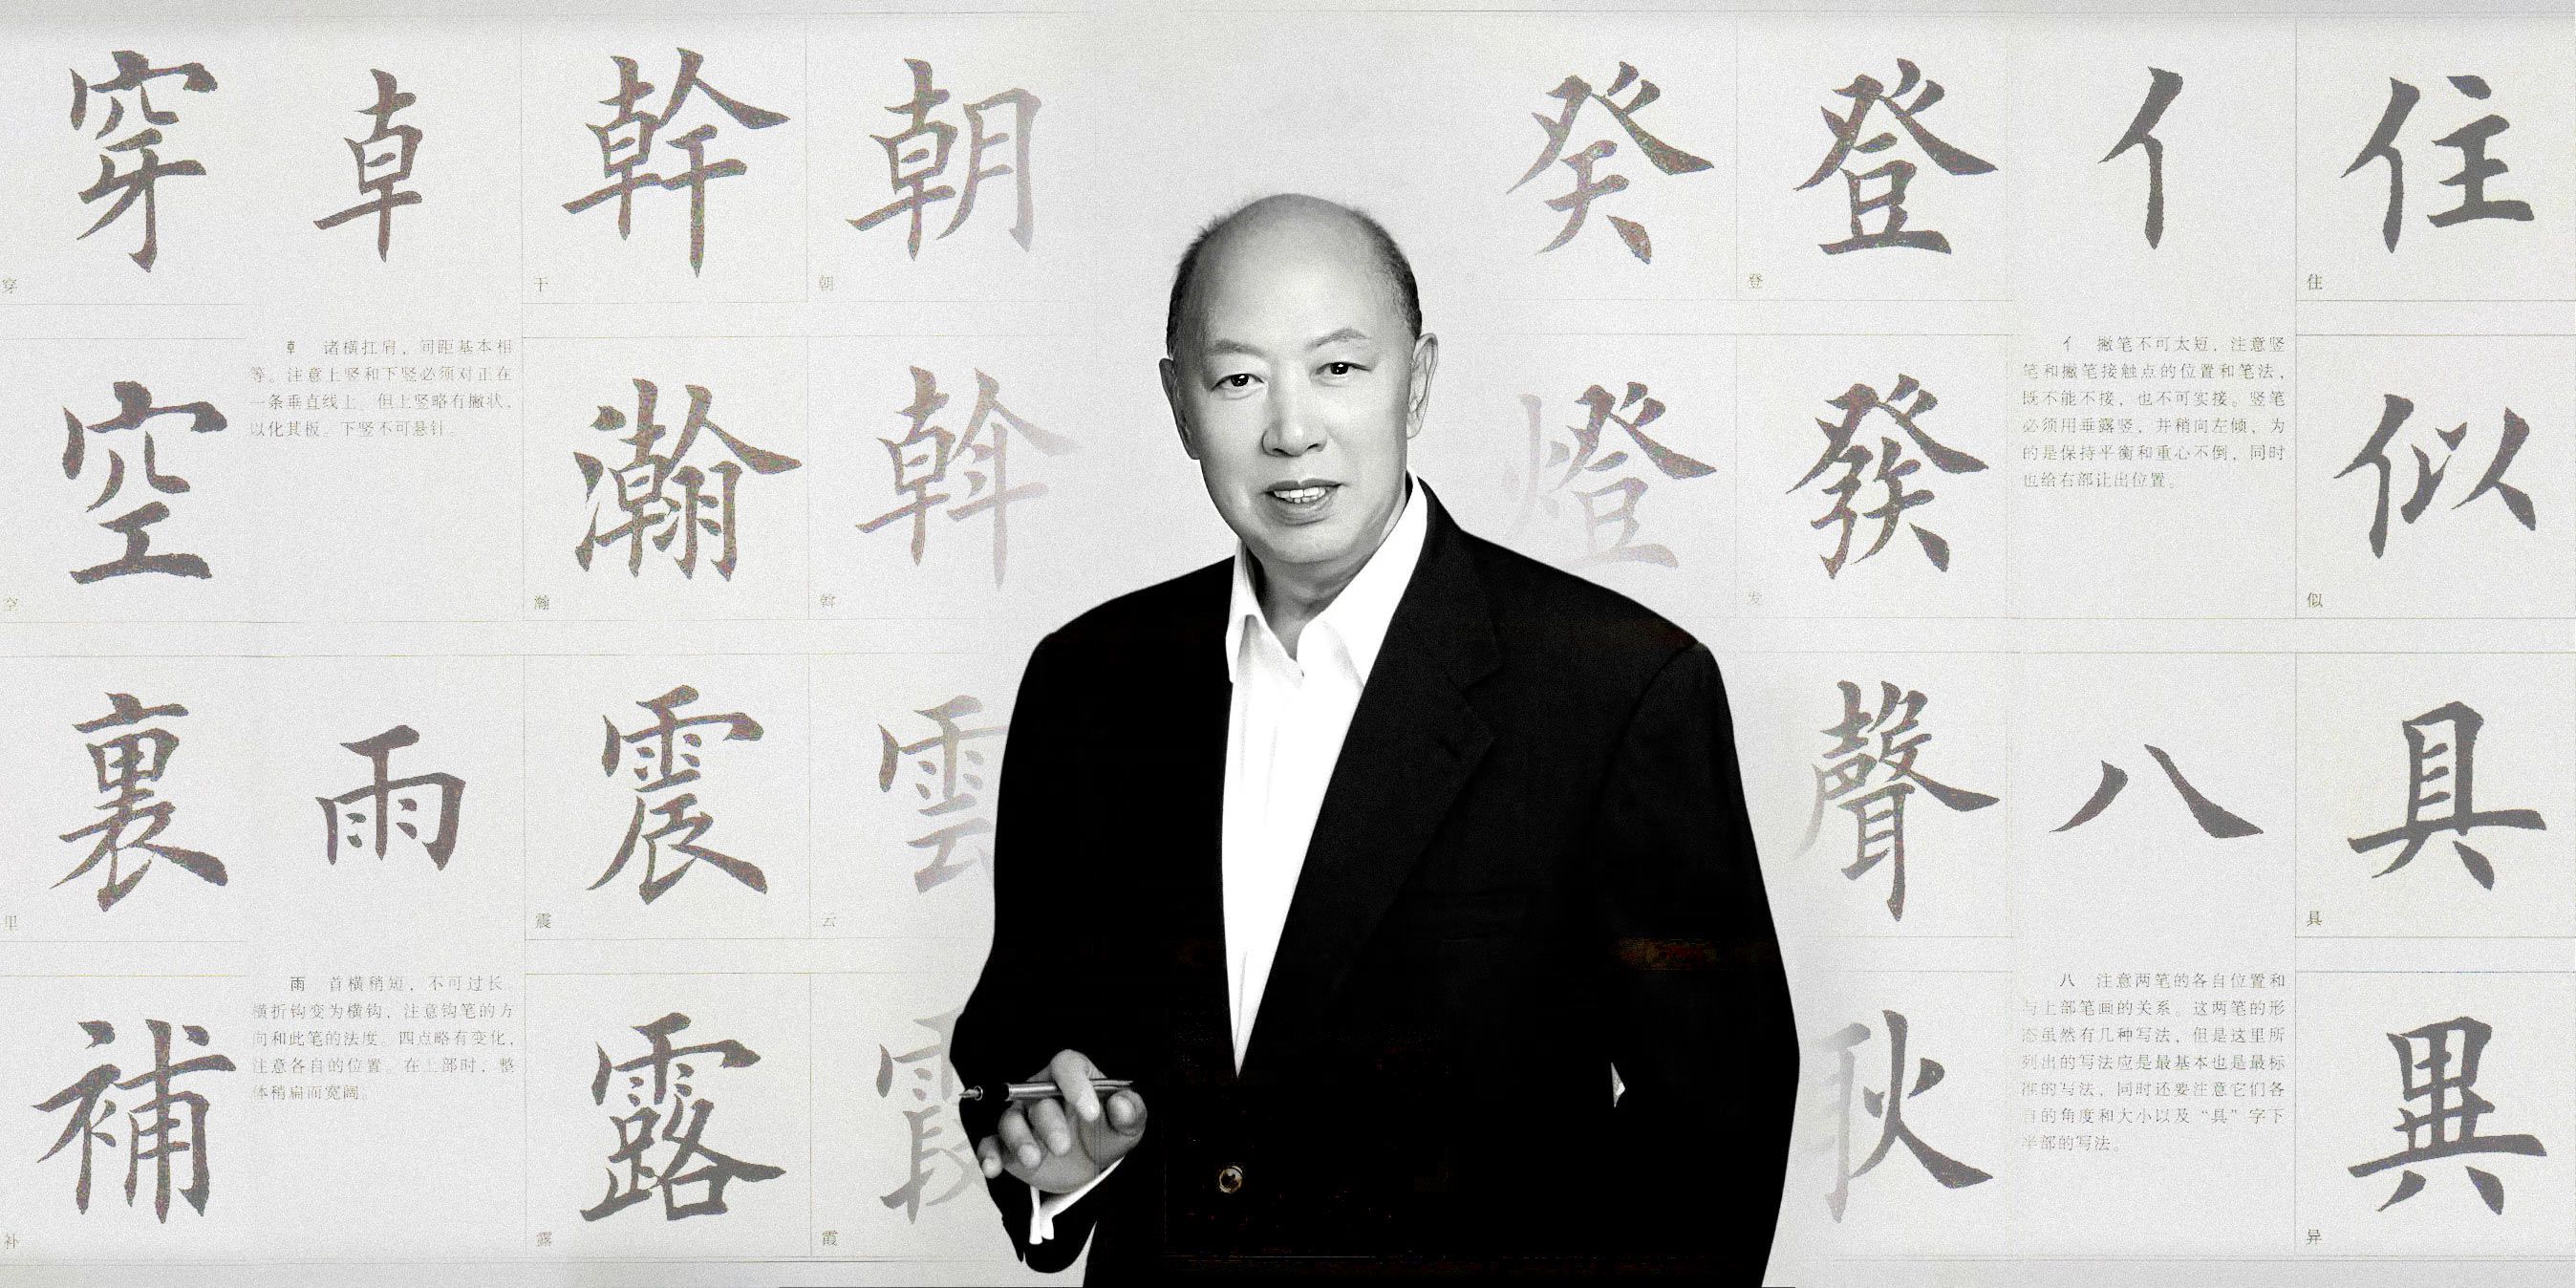 穿 𠦝 幹 朝 癸 登 亻 住
穿 干 朝 登 住
𠦝 诸横扛肩，间距基本相
等。注意上竖和下竖必须对正在
一条垂直线上，但上竖略有撇状，
以化其板。下竖不可悬针。
亻 撇笔不可太短，注意竖
笔和撇笔接触点的位置和笔法，
既不能不接，也不可实接。竖笔
必须用垂露竖，并稍向左倾，为
的是保持平衡和重心不倒，同时
也给右部让出位置。
空 瀚 斡 燈 發 似
空 瀚 斡 发 似
裏 雨 震 雲 聲 八 具
里 震 云 具
雨 首横稍短，不可过长。
横折钩变为横钩，注意钩笔的方
向和此笔的法度。四点略有变化，
注意各自的位置。在上部时，整
体稍扁而宽阔。
八 注意两笔的各自位置和
与上部笔画的关系。这两笔的形
态虽然有几种写法，但是这里所
列出的写法应是最基本也是最标
准的写法，同时还要注意它们各
自的角度和大小以及“具”字下
半部的写法。
補 露 霞 耿 異
补 露 霞 异